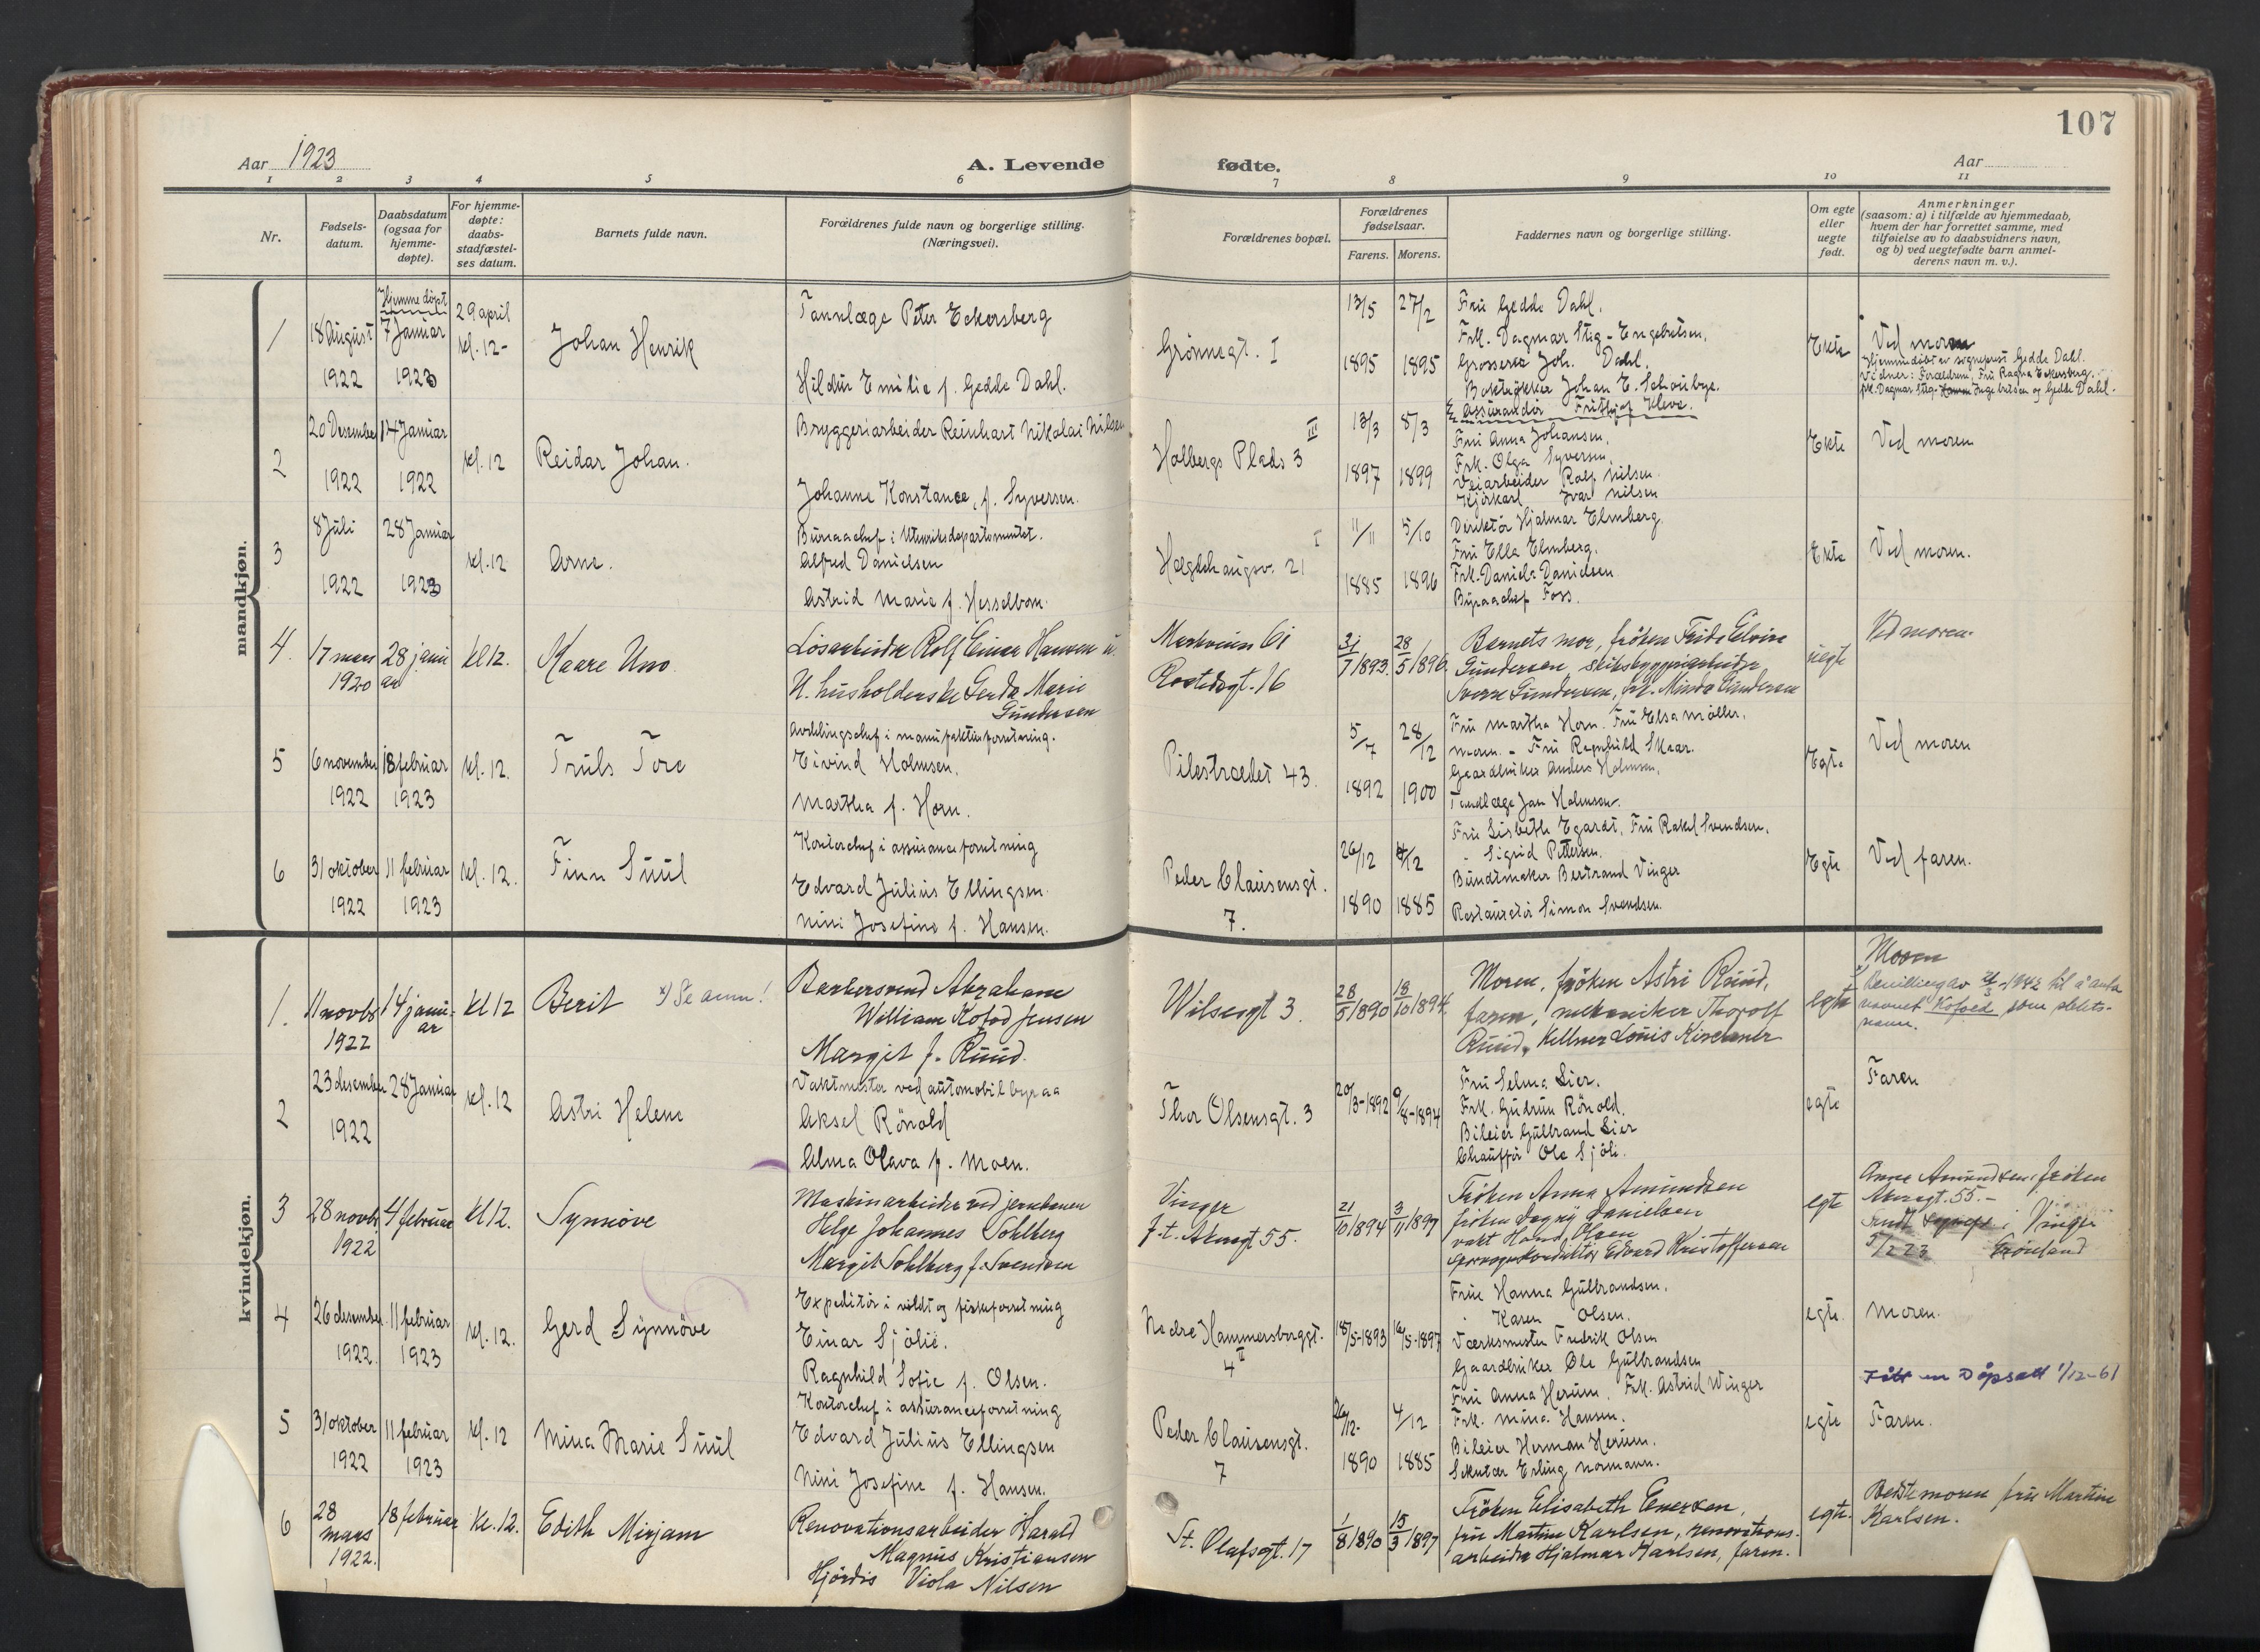 107
Aar 1923
A. Levende
fødte.
Aar
1 2 3 4 5 6 7 8 9 10 11
Nr.
Fødsels-
datum.
Daabsdatum
(ogsaa for
hjemme-
døpte).
For hjemme-
døpte:
daabs-
stadfæstel-
ses datum.
Barnets fulde navn.
Forældrenes fulde navn og borgerlige stilling.
(Næringsvei).
Forældrenes bopæl.
Forældrenes
fødselsaar.
Farens. Morens.
Faddernes navn og borgerlige stilling.
Om egte
eller
uegte
født.
Anmerkninger
(saasom: a) i tilfælde av hjemmedaab,
hvem der har forrettet samme, med
tilføielse av to daabsvidners navn,
og b) ved uegtefødte barn anmel-
derens navn m. v.).
mandkjøn.
1
18 August
1922
Hjemmedøpt
7 Januar
1923
29 april
kl. 12-
Johan Henrik
Tannlæge Peter Eckersberg
Hildur Emilie f. Gedde Dahl.
Grønnegt. I
13/5
1895
27/2
1895
Fru Gedde Dahl.
Frk. Dagmar Stig-Engebretsen.
Grosserer Joh. Dahl.
Boktrykker Johan E. Schoubye.
Assurandør Frithjof Kleve.
Ekte
Ved moren
Hjemmedøbt av sogneprest Gedde Dahl.
Vidner: Forældrene, Fru Ragna Eckersberg.
frk. Dagmar Stig- Ingebretsen og Gedde Dahl.
2
20 Desember
1922
14 Januar
1922
kl. 12
Reidar Johan.
Bryggeriarbeider Reinhart Nikolai Nilsen
Johanne Konstance, f. Syversen.
Holbergs Plads 3 III
13/3
1897
8/3
1899
Fru Anna Johansen.
Frk. Olga Syversen.
Veiarbeider Ralf Nilsen.
Kjørkarl Ivar Nilsen
Ekte
Ved moren
3
8 Juli
1922
28 Januar
1923
kl. 12
Arne.
Buraachef i Utenriksdepartementet.
Alfred Danielsen
Astrid Marie f. Hesselbom.
Hægdehaugsv. 21 I
11/11
1885
5/10
1896
Direktør Hjalmar Elmberg
Fru Ella Elmberg.
Frk. Daniela Danielsen
Byraachef Foss.
Ekte
Ved moren.
4.
17 mars
1920
28 janu
ar
kl 12.
Kaare Uno
Løsarbeider Rolf Einar Hansen u.
U. husholderske Gerda Marie
Gundersen
Markveien 61
Rostedsgt. 16
31/7 1893.
28/5 1896.
Barnets mor, frøken Frida Elvira
Gundersen, skibsbyggeriarbeider
Sverre Gundersen, frk. Minda Gundersen
uegte
Ved moren.
5
6 november
1922
18 februar
1923
kl. 12.
Truls Tore
Avdelingschef i manufakturforretning.
Eivind Holmsen.
Martha f. Horn.
Pilestrædet 43.
5/7
1892
28/12
1900
Fru Martha Horn. Fru Elsa Møller.
moren. - Fru Ragnhild Skaar.
Gaardbruker Anders Holmsen.
Tandlæge Jan Holmsen.
Egte
Ved moren
6
31 oktober
1922
11 februar
1923
kl. 12.
Finn Suul
Kontorchef i assuranceforretning
Edvard Julius Ellingsen.
Nini Josefine f. Hansen.
Peder Clausensgt.
7.
26/12
1890
4/12
1885
Fru Lisbeth Egardt, Fru Rakel Svendsen.
" Sigrid Pettersen.
Bundtmaker Bertrand Vinger
Restauratør Simon Svendsen.
Egte
Ved faren.
kvindekjøn.
1.
11 novbr
1922
14 janu-
ar
kl 12
Berit x) Se anm!
Barbersvend Abraham
William Kofod Jensen
Margit f. Ruud.
Wilsesgt 3.
28/5 1890
18/10 1894.
Moren, frøken Astri Ruud,
faren, mekaniker Thorolf
Ruud, Kellner Louis Kirchner
egte
Moren
x) Bevilling av 1942 til å anta
navnet Kofoed som slekts-
navn.
2
23 desember
1922
28 Januar
kl. 12
Astri Helene
Vaktmester ved automobilbyraa
Aksel Rønold
Alma Olava f. Moen.
Thor Olsensgt. 3
20/3-1892
9/8-1894
Fru Selma Lier.
Frk. Gudrun Rønold.
Bileier Gulbrand Lier
Chauffør Ole Sjøli.
egte
Faren
3
28 novbr
1922
4 februar
kl 12.
Synnøve
Maskinarbeider ved jernbanen
Helge Johannes Sohlberg
Margit Sohlberg f. Svendsen
Vinger
f. t. Akersgt 55.
21/10 1894
3/11 1897
Frøken Anna Amundsen
frøken Dagny Danielsen
vakt Hans Olsen
sporvognskonduktør Edvard Kristoffersen
egte
Anna Amundsen, frøken
Akersgt. 55.-
Sendt i Vinger
5/2 23 Grønland
4
26 desember
1922.
11 februar
1923
kl. 12.
Gerd Synnøve
Expeditør i vildt og fiskeforretning
Einar Sjølie.
Ragnhild Sofie f. Olsen.
Nedre Hammersborggt.
4 II
18/5-1893
16/5-1897
Frue Hanna Gulbrandsen.
" Karen Olsen.
Værksmester Fredrik Olsen
Gaardbruker Ole Gulbrandsen
egte
moren.
Fått en Dåpsatt 1/12-61
5
31 oktober
1922
11 februar
1923
kl. 12
Mina Marie Suul
Kontorchef i assuranceforretning
Edvard Julius Ellingsen
Nini Josefine f. Hansen.
Peder Clausensgt.
7
26/12.
1890
4/12
1885
Fru Anna Herum, Frk. Astrid Winger
Frk. Mina Hansen.
Bileier Herman Herum.
Sekretær Erling Normann.
egte
Faren.
6
28
mars
1922.
18 februar
kl. 12.
Edith Mirjam
Renovationsarbeider Harald
Magnus Kristiansen
Hjørdis Viola Nilsen
St. Olafsgt. 17
1/8 1890
15/3 1897
Frøken Elisabeth Enersen,
fru Martine Karlsen, renovations-
arbeider Hjalmar Karlsen, faren.
egte.
Bedstemoren fru Martine
Karlsen.